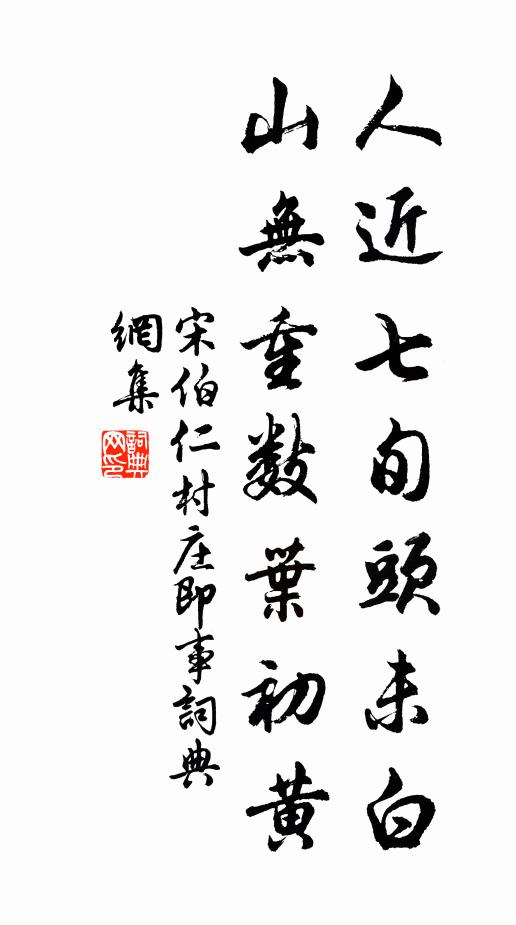 人近七旬頭未白
山無重數葉初黃
宋伯仁村庄即事詞典
網集
詞典
网印